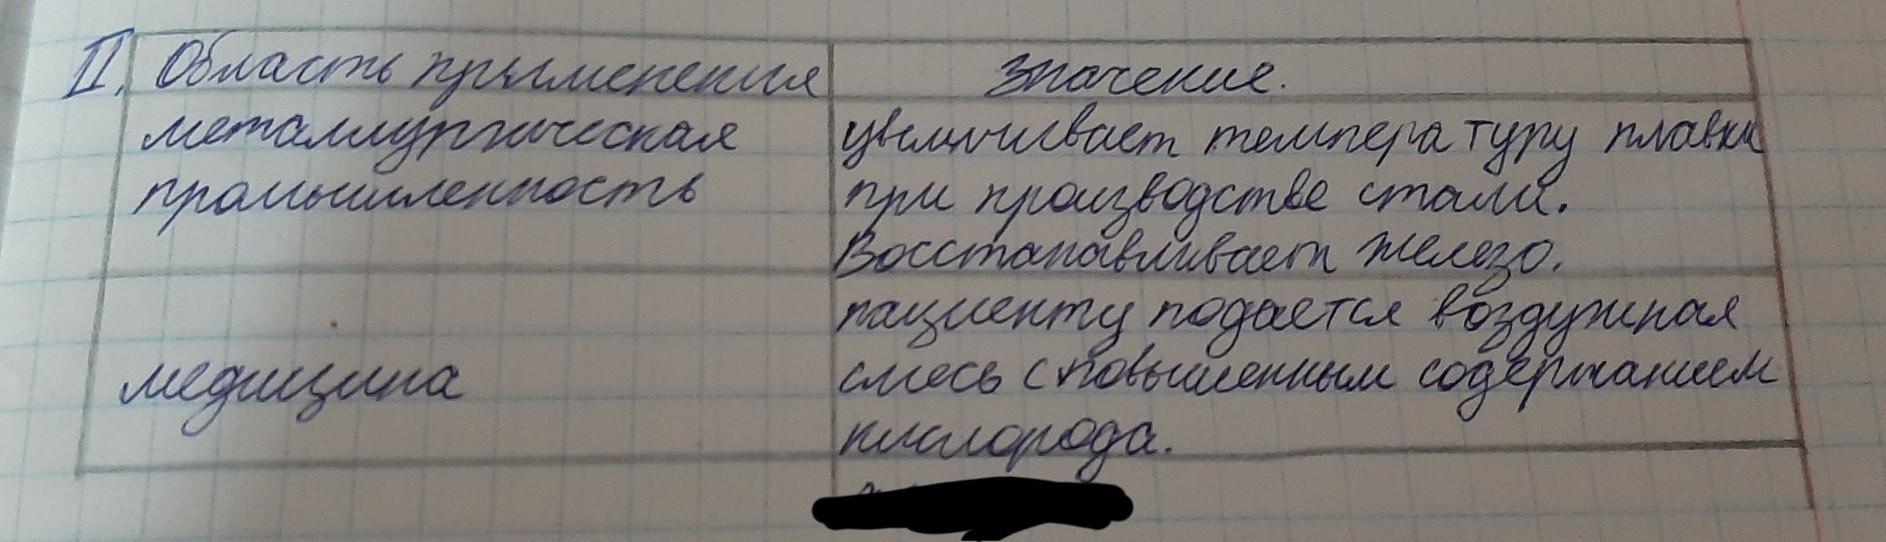 II. Область применения
Значение.
металлургическая
промышленность
увеличивает температуру плавки
при производстве стали.
Восстанавливает железо.
медицина
пациенту подается воздушная
смесь с повышенным содержанием
кислорода.